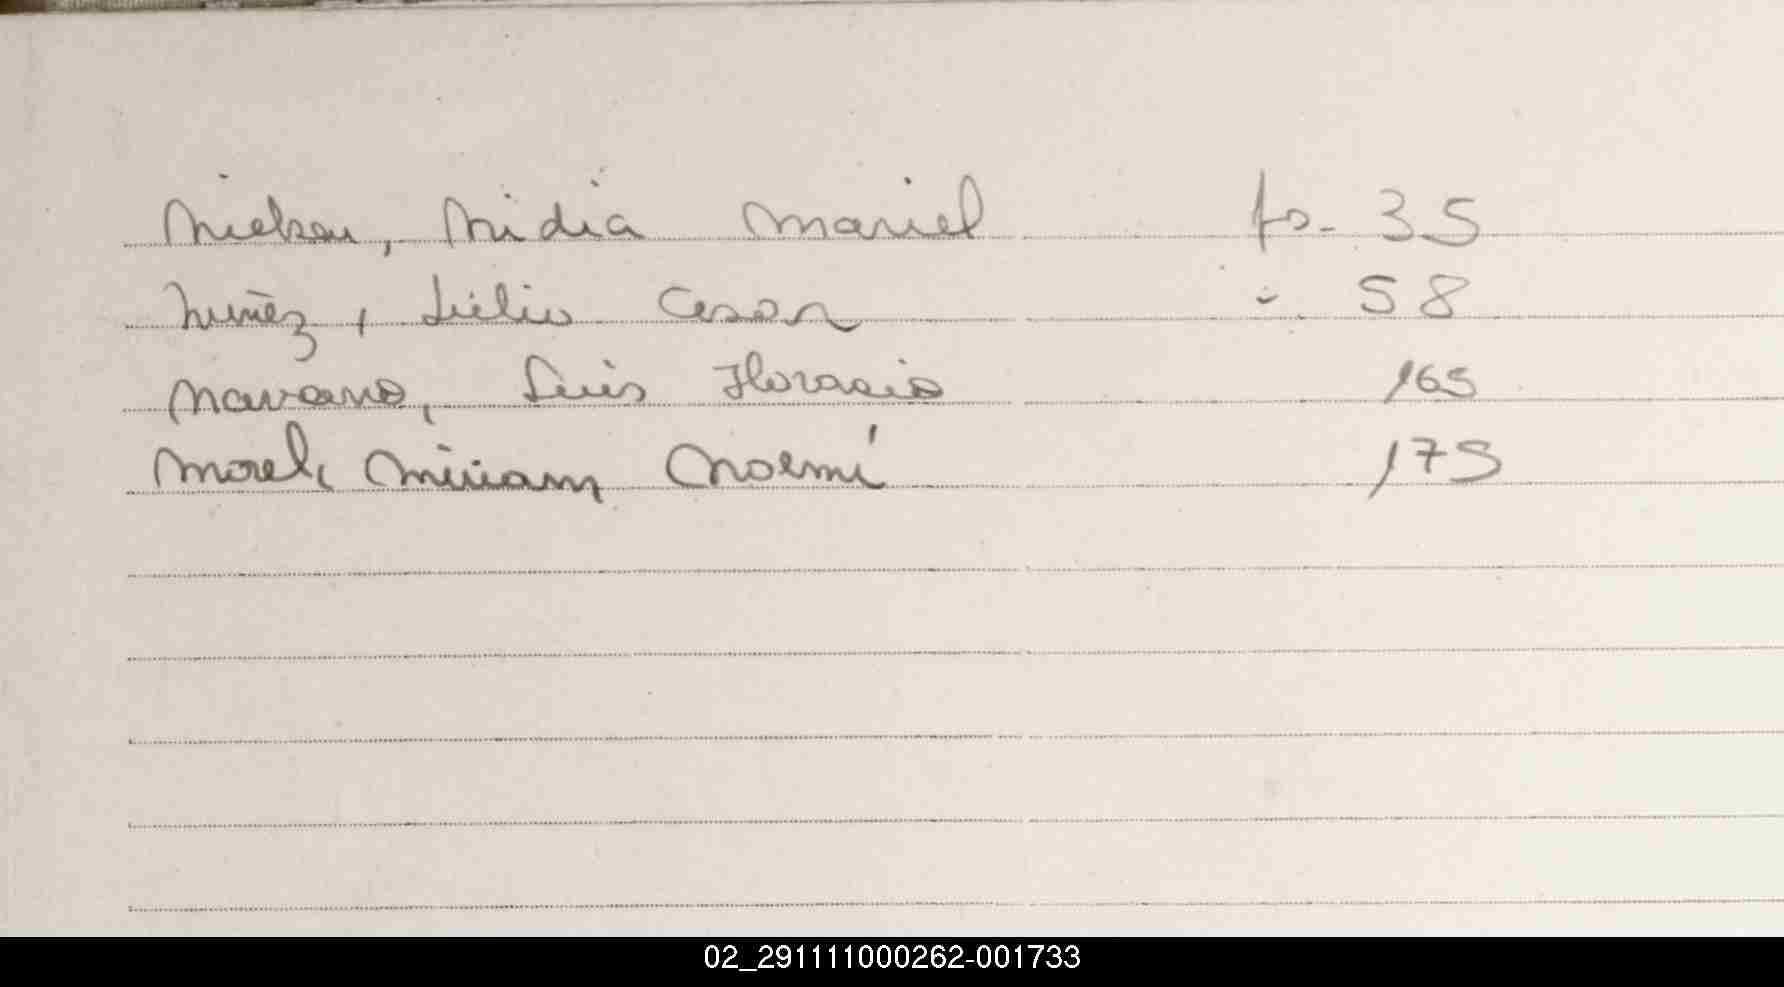 Nielsen, Nidia Mariel fs. 35
Nuñez, Lélio Cesar " 58
Navarro, Luis Horacio 165
Morel, Miriam Noemí 175
02_291111000262-001733